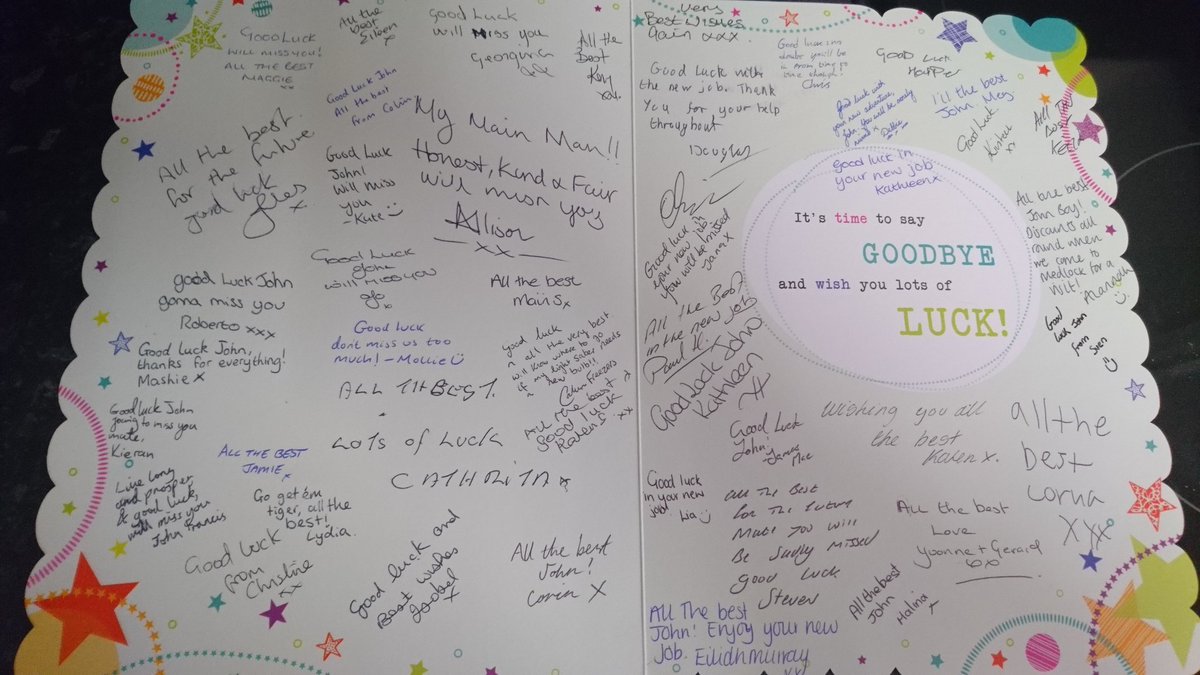 GOOD LUCK
WILL MISS YOU!
ALL THE BEST
MAGGIE
All the
best
Eileen
x
Good Luck
will miss you
Georgina
All the
Best
Good Luck John
All the best
from Colin
My Main Man!!
Honest, Kind & Fair
will miss you
Allison
xx
All the best
for the future
good luck
x
Good Luck
John!
Will miss
you
Kate
Good Luck
John
will miss you
Jo
xx
good Luck John
gonna miss you
Roberto xxx
All the best
Mairi S x
Good Luck John,
thanks for everything!
Mashie x
Good luck
don't miss us too
much! - Mollie
good luck
n all the very best
will know where to go
if my light saber needs
new bulb!!
ALL TH BEST.
LOTS OF LUCK
CATHRITA x
All the best
good luck
Karen S xx
Good luck John
going to miss you
mate,
Kieran
ALL THE BEST
JAMIE x
Live long
and prosper
& good luck,
will miss you
John Francis
Go get em
tiger, all the
best!
Lydia.
Good luck
from
Christine
xx
Good luck and
Best wishes
Isobel
x
All the best
John!
x
very
Best Wishes
again xxx.
Good luck
Chris
Good Luck
Good Luck with
the new job. Thank
You for your help
throughout
Douglas
Good luck with
your new adventure,
John. You will be sorely
missed x Debbie
I'll the best
John Meg
Good Luck
Kirsten
xx
All The
Best
Good luck in
your new job
Kathleen x
It's time to say
GOODBYE
and wish you lots of
LUCK!
Good luck in
your new job
you will be missed
Jana x
All the best
John Boy!
Discounts all
round when
we come to
Medlock for a
Wit!
Alannah
All the Best
in the new job
Paul K.
Good luck John
from
Sven
Good Luck John
Kathleen
Good Luck
John!
James
Mac
Wishing you all
the best
Karen x.
all the
best
Lorna
xxx
Good luck
in your new
job!
Lia
All The Best
for The future
Mate you will
Be Sadly Missed
good Luck
Steven
All the best
Love
Yvonne + Gerard
xx
All the best
John
Halina
x
All The best
John! Enjoy your new
Job. Eilidh Murray
xx